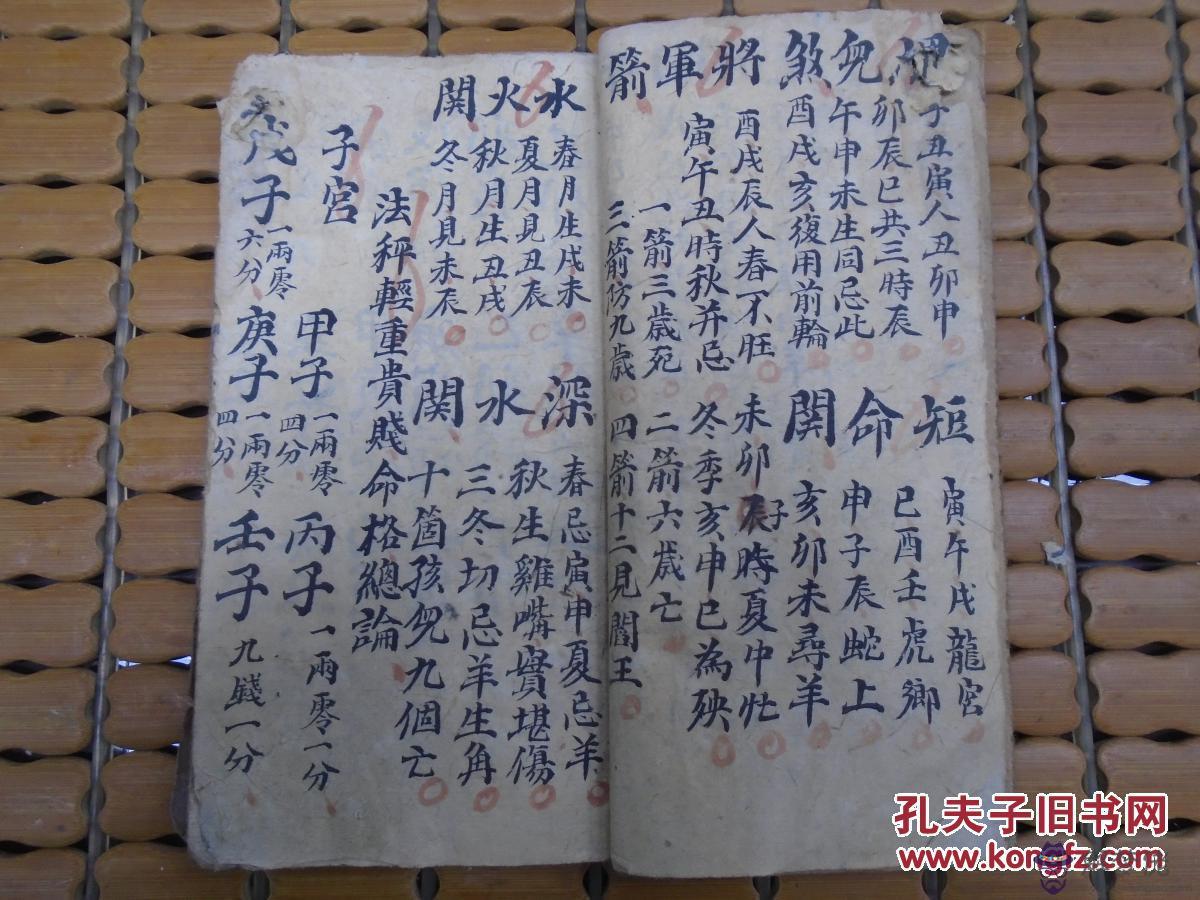 兒煞
子丑寅人丑卯申
卯辰巳共三時辰
午申未生同忌此
酉戌亥復用前輪
短命関
寅午戌龍宮
巳酉壬虎鄉
申子辰蛇上
亥卯未尋羊
將軍箭
酉戌辰人春不旺
未卯子時夏中忙
寅午丑時秋并忌
冬季亥申巳為殃
一箭三歲死 二箭六歲亡
三箭防九歲 四箭十二見閻王
水火関
春月生戌未
夏月見丑辰
秋月生丑戌
冬月見未辰
深水関
春忌寅申夏忌羊
秋生雞嘴實堪傷
三冬切忌羊生角
十箇孩兒九個亡
法秤輕重貴賤命格總論
子宮 甲子 一兩零四分 丙子 一兩零一分
戊子 一兩零六分 庚子 一兩零四分 壬子 九錢一分
孔夫子旧书网
www.kongfz.com